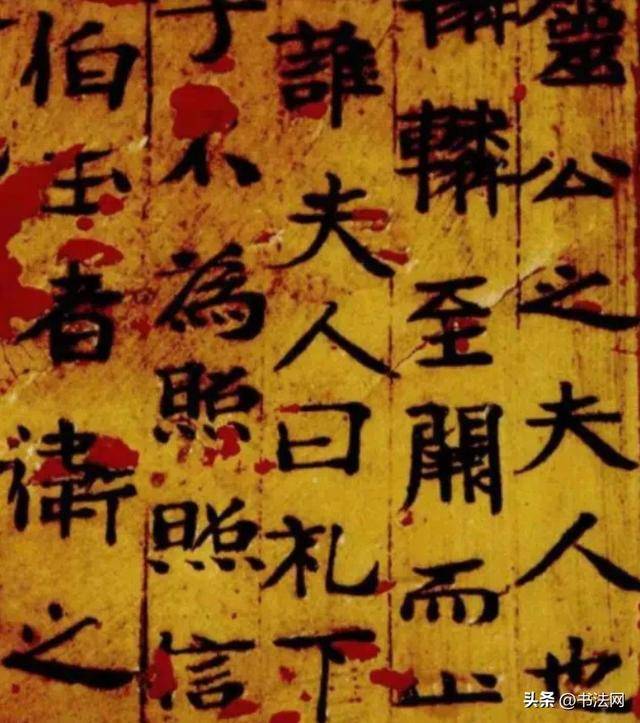 靈公之夫人也
轔轔至闕而止
誰夫人曰礼下
子不為照照信
伯玉者衛之
头条 @书法网